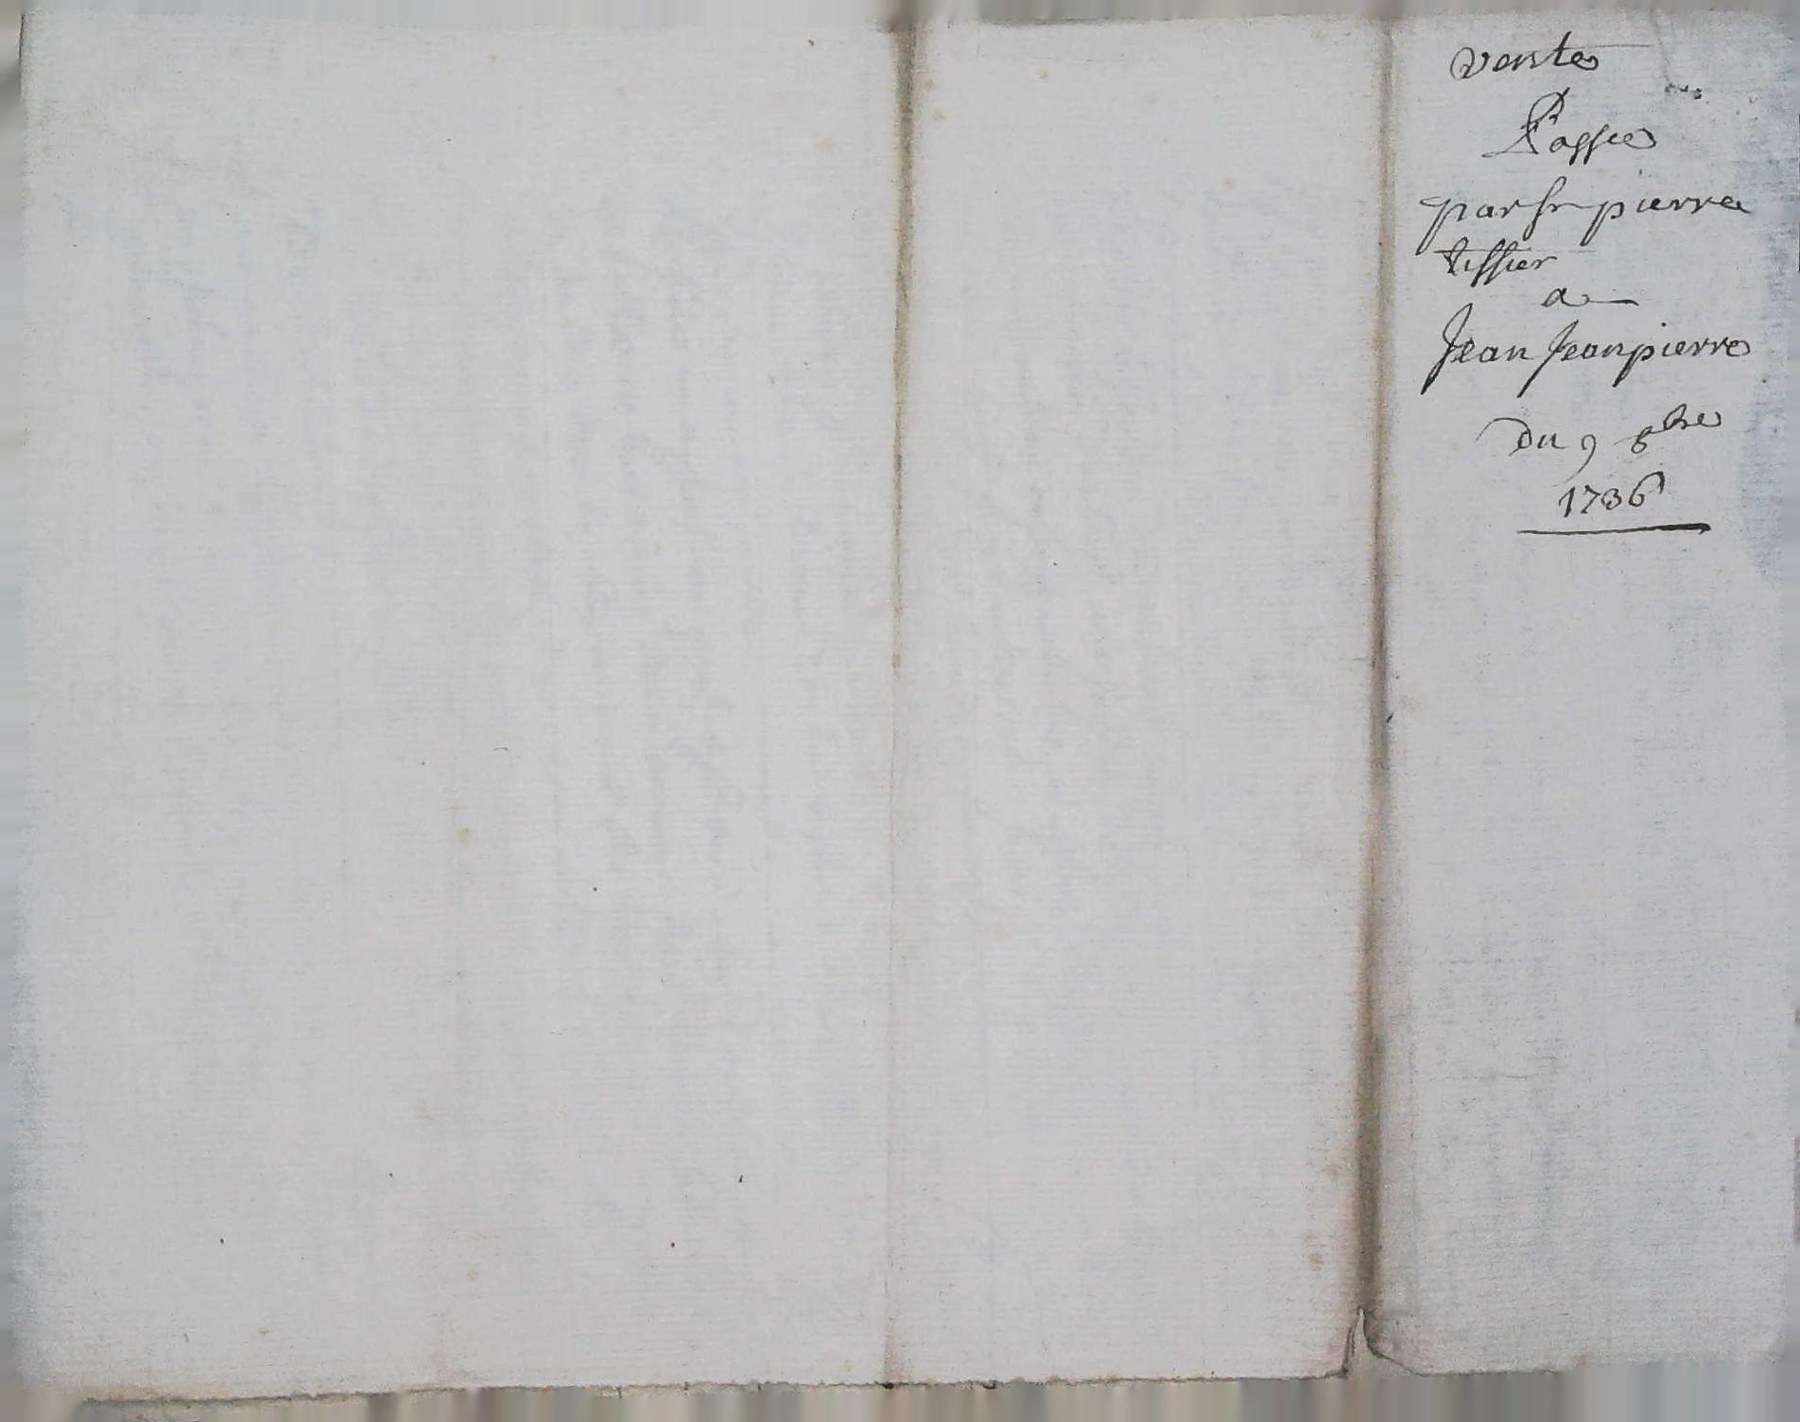 vente
Passée
par sr pierre
tissier
a
Jean Jeanpierre
Du 9 8bre
1736